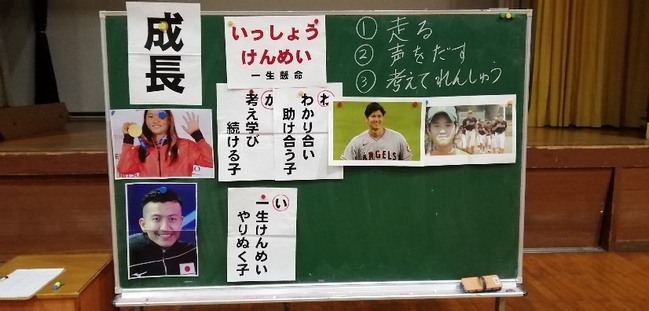 成長
いっしょう
けんめい
一生懸命
① 走る
② 声をだす
③ 考えてれんしゅう
わ
わかり合い
助け合う子
か
考え学び
続ける子
ANGELS
い
一生けんめい
やりぬく子